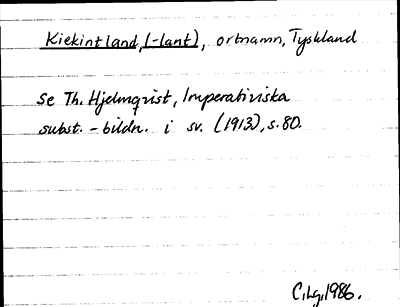 Kiekintland, (-lant), ortnamn, Tyskland
se Th. Hjelmqvist, Imperativiska
subst.-bildn. i sv. (1913), s. 80.
C.Lg. 1986.